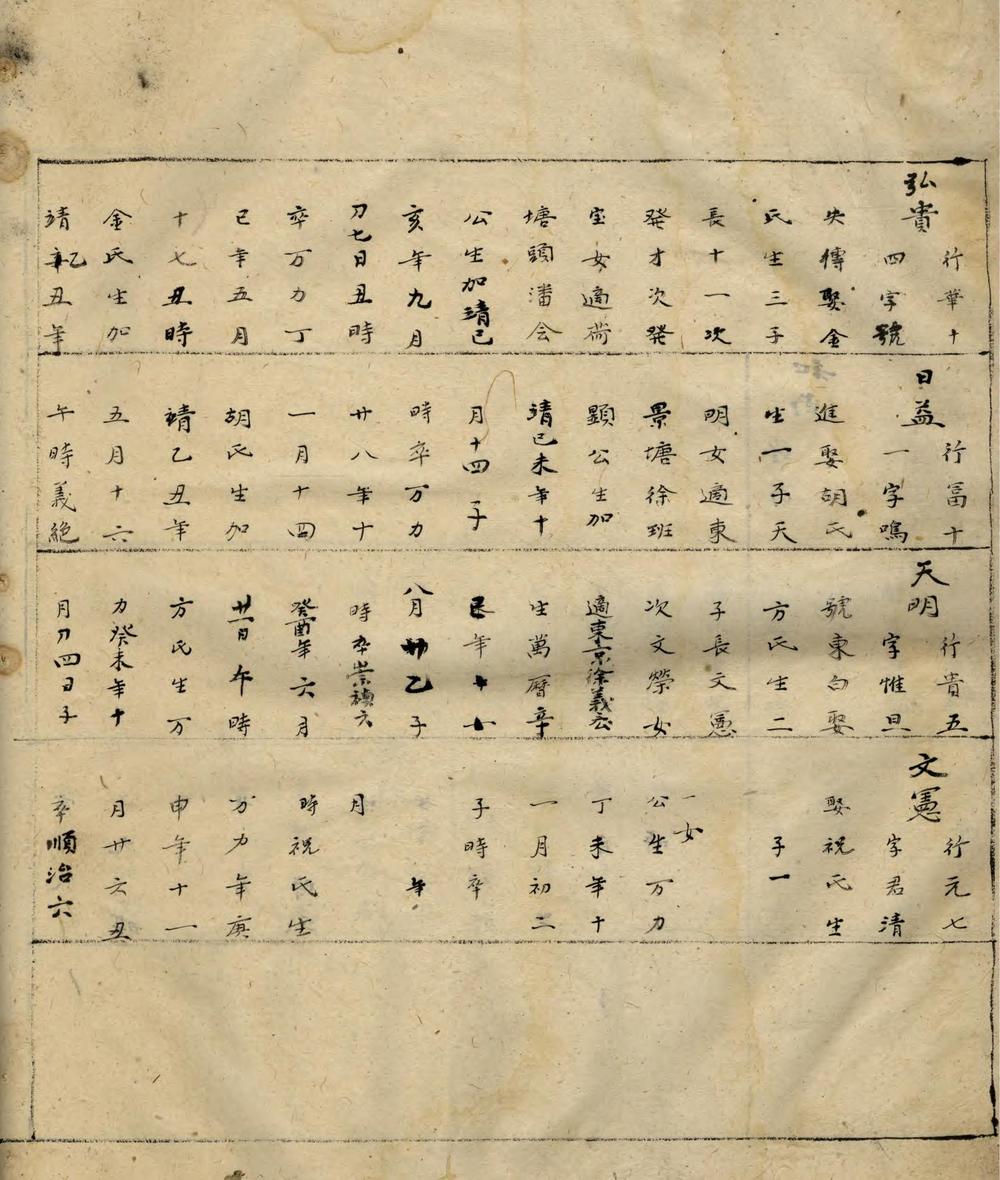 弘貴
行華十
四字號
失傳娶金
氏生三子
長十一次
発才次発
宝女適荷
塘頭潘会
公生加靖己
亥年九月
初七日丑時
卒万力丁
巳年五月
十七丑時
金氏生加
靖乙丑年
日益
行冨十
一字鳴
進娶胡氏
生一子天
明女適東
景塘徐班
顕公生加
靖己未年十
月十四子
時卒万力
廿八年十
一月十四
胡氏生加
靖乙丑年
五月十六
午時義絶
天明
行貴五
字惟旦
號東白娶
方氏生二
子長文憲
次文榮女
適東京徐義宏
生萬曆辛
巳年十
八月廿乙子
時卒崇禎六
癸酉年六月
廿一日午時
方氏生万
力癸未年十
月初四日子
文憲
行元七
字君清
娶祝氏生
子一
一女
公生万力
丁未年十
一月初二
子時卒
年
月
時祝氏生
万力年庚
申年十一
月廿六丑
卒順治六